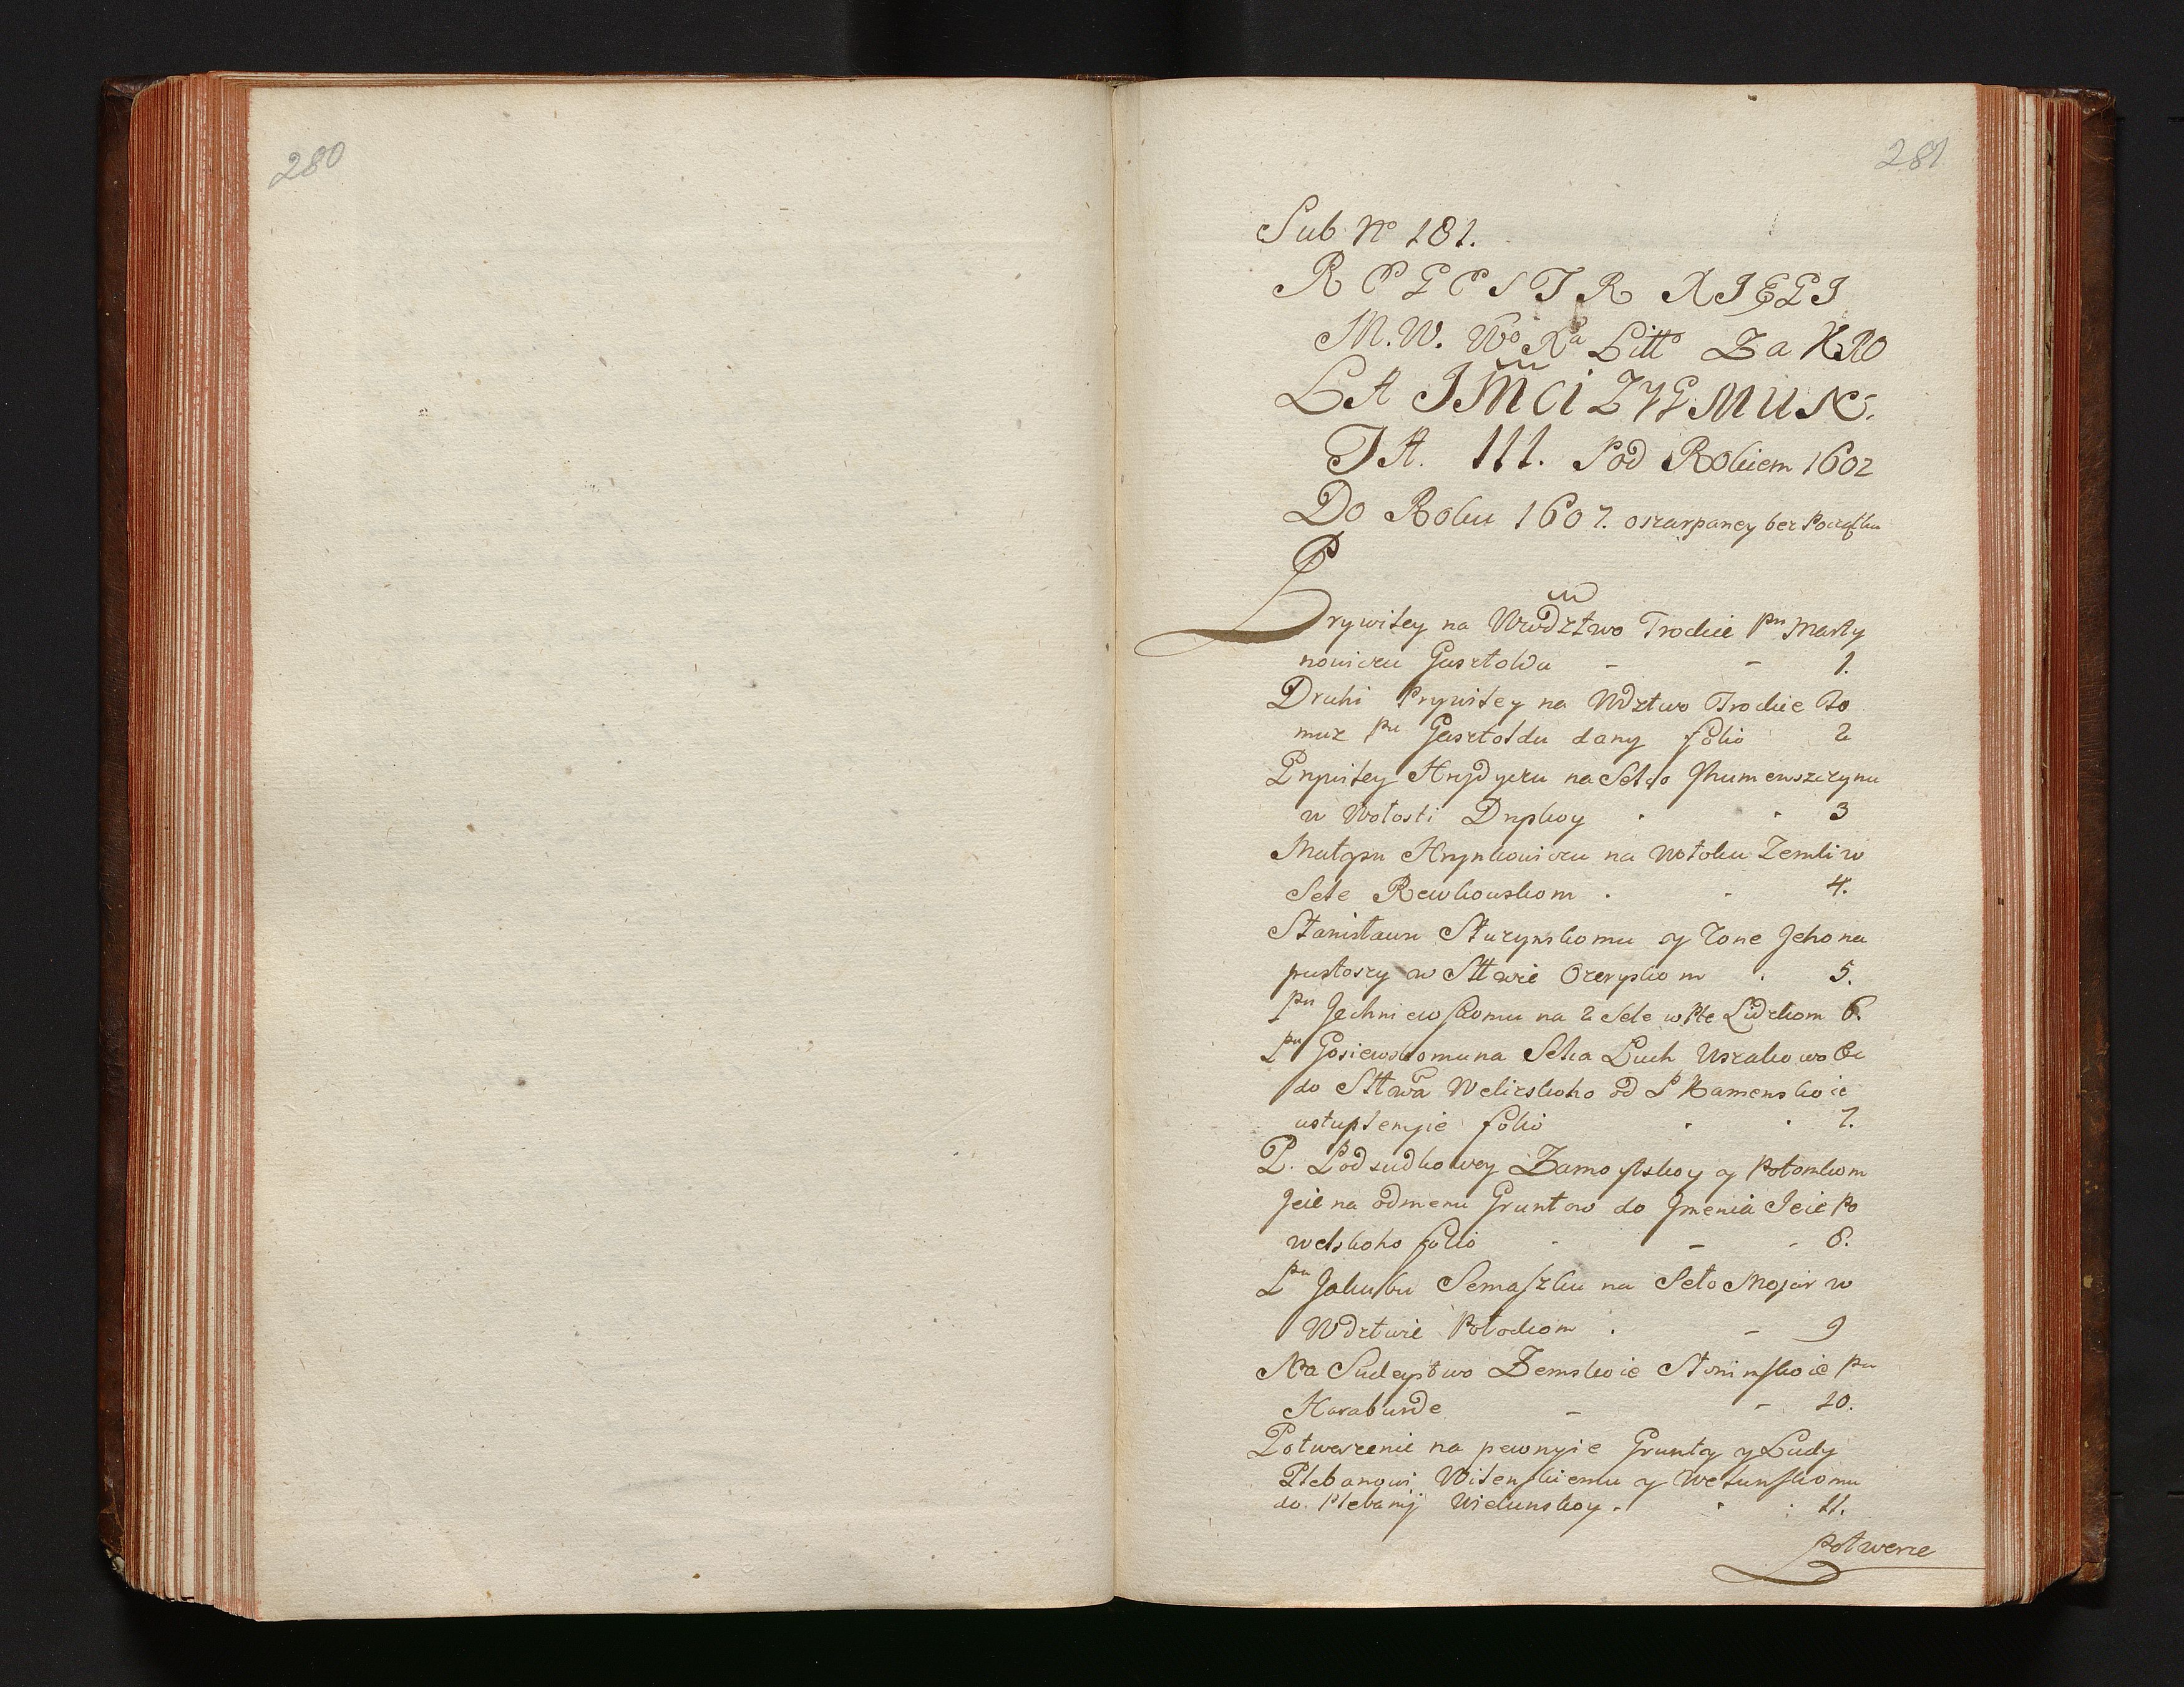 280
281
Sub No 181.
REGESTR XIĘGI
M. W. Wo Xa Litto Za KRO
LA JMCi ZYGMUN-
TA. III. Pod Rokiem 1602
Do Roku 1607. oszarpaney bez Początku
Prywiley na Wwdztwo Trockie Pn Marty
nowiczu Gasztoldu - - 1.
Druhi Prywiley na Wdztwo Trockie To
muz Pu Gasztoldu dany folio 2
Prywiley Hrydyczu na Selco Jhumenszczynu
w Wołosti . . 3
Hrynkowiczu na Wołoku Zemli w
Sele Rewkowskom . - 4.
Stanisławu Sturynskomu y Zone Jeho na
pustoszy w Sttwie Ozeryskom . 5.
Pn Jechniewskomu na 2 Sele w Pte Lidzkom 6.
Pu Gosiewskomu na Selca Luch Uszakowo Be
do Sttwa Weliżskoho od P Kamenskoie
ustuplenyie folio . . 7.
P. Podsudkowey Zamoyskoy y Potomkom
Jeie na odmenu Gruntow do Jmenia Jeie Po
welskoho folio - - - 8.
Pu Jakubu Semaszku na Seło Mojar w
Wdztwie Połockom . - 9
Na Sudeystwo Zemskoie Słonimskoie Pu
Harabunde - - 10.
Potwerzenie na pewnyie Grunty y Ludy
Plebanowi Wilenskiemu y Welunskomu
do Plebanij Wielunskoy . . : 11.
Potwerze